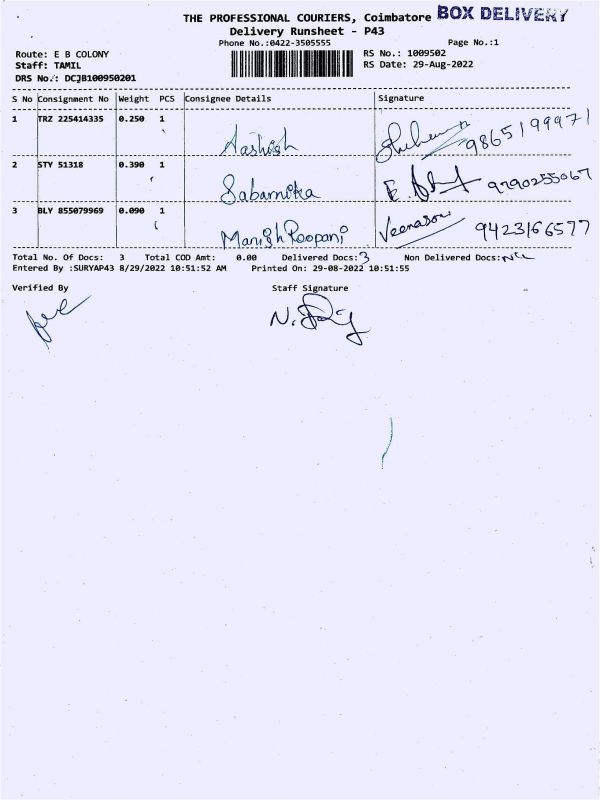 THE PROFESSIONAL COURIERS, Coimbatore BOX DELIVERY
Delivery Runsheet - P43
Phone No.:0422-3505555 Page No.:1
Route: E B COLONY RS No.: 1009502
Staff: TAMIL RS Date: 29-Aug-2022
DRS No.: DCJB100950201
S No Consignment No Weight PCS Consignee Details Signature
1 TRZ 225414335 0.250 1 Aashish 9865199971
2 STY 51318 0.390 1 Sabarnika 9790255067
3 BLY 855079969 0.090 1 Manish Roopani Veenasou 9423166577
Total No. Of Docs: 3 Total COD Amt: 0.00 Delivered Docs: 3 Non Delivered Docs: NIL
Entered By :SURYAP43 8/29/2022 10:51:52 AM Printed On: 29-08-2022 10:51:55
Verified By Staff Signature